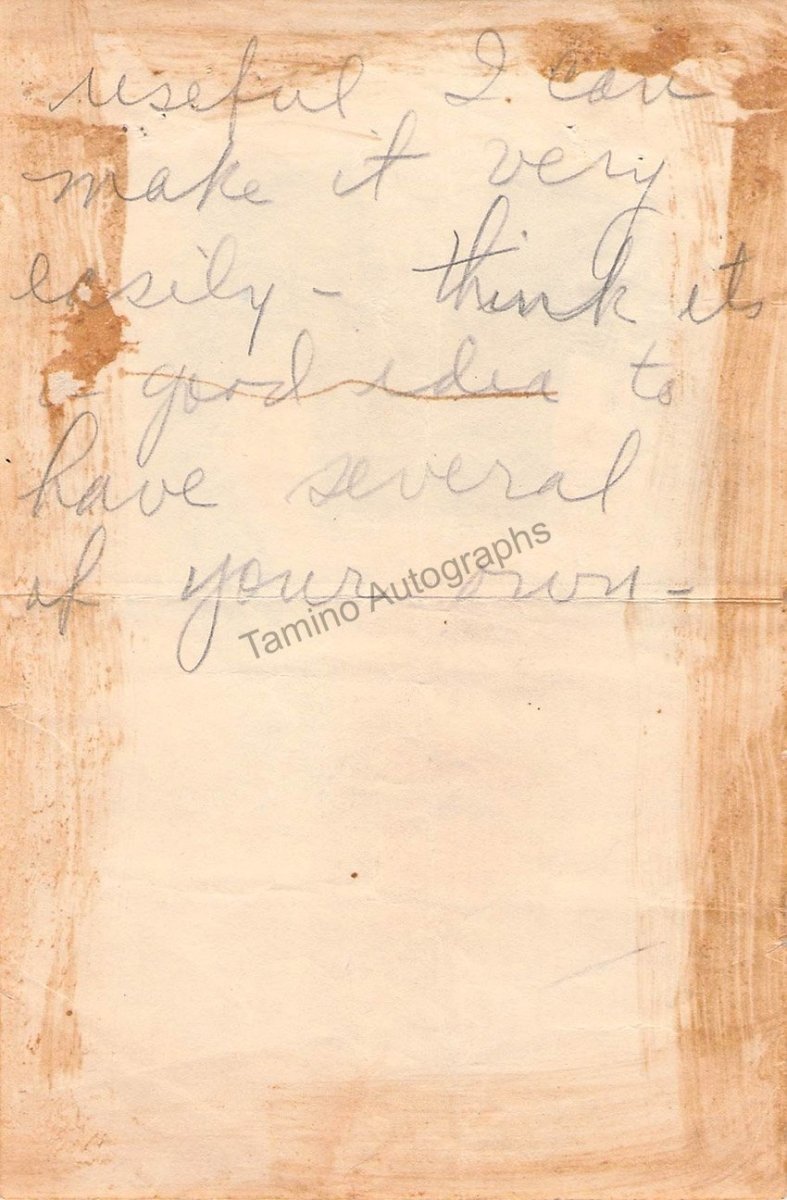 useful I can
make it very
easily - think its
a good idea to
have several
of your own -
Tamino Autographs